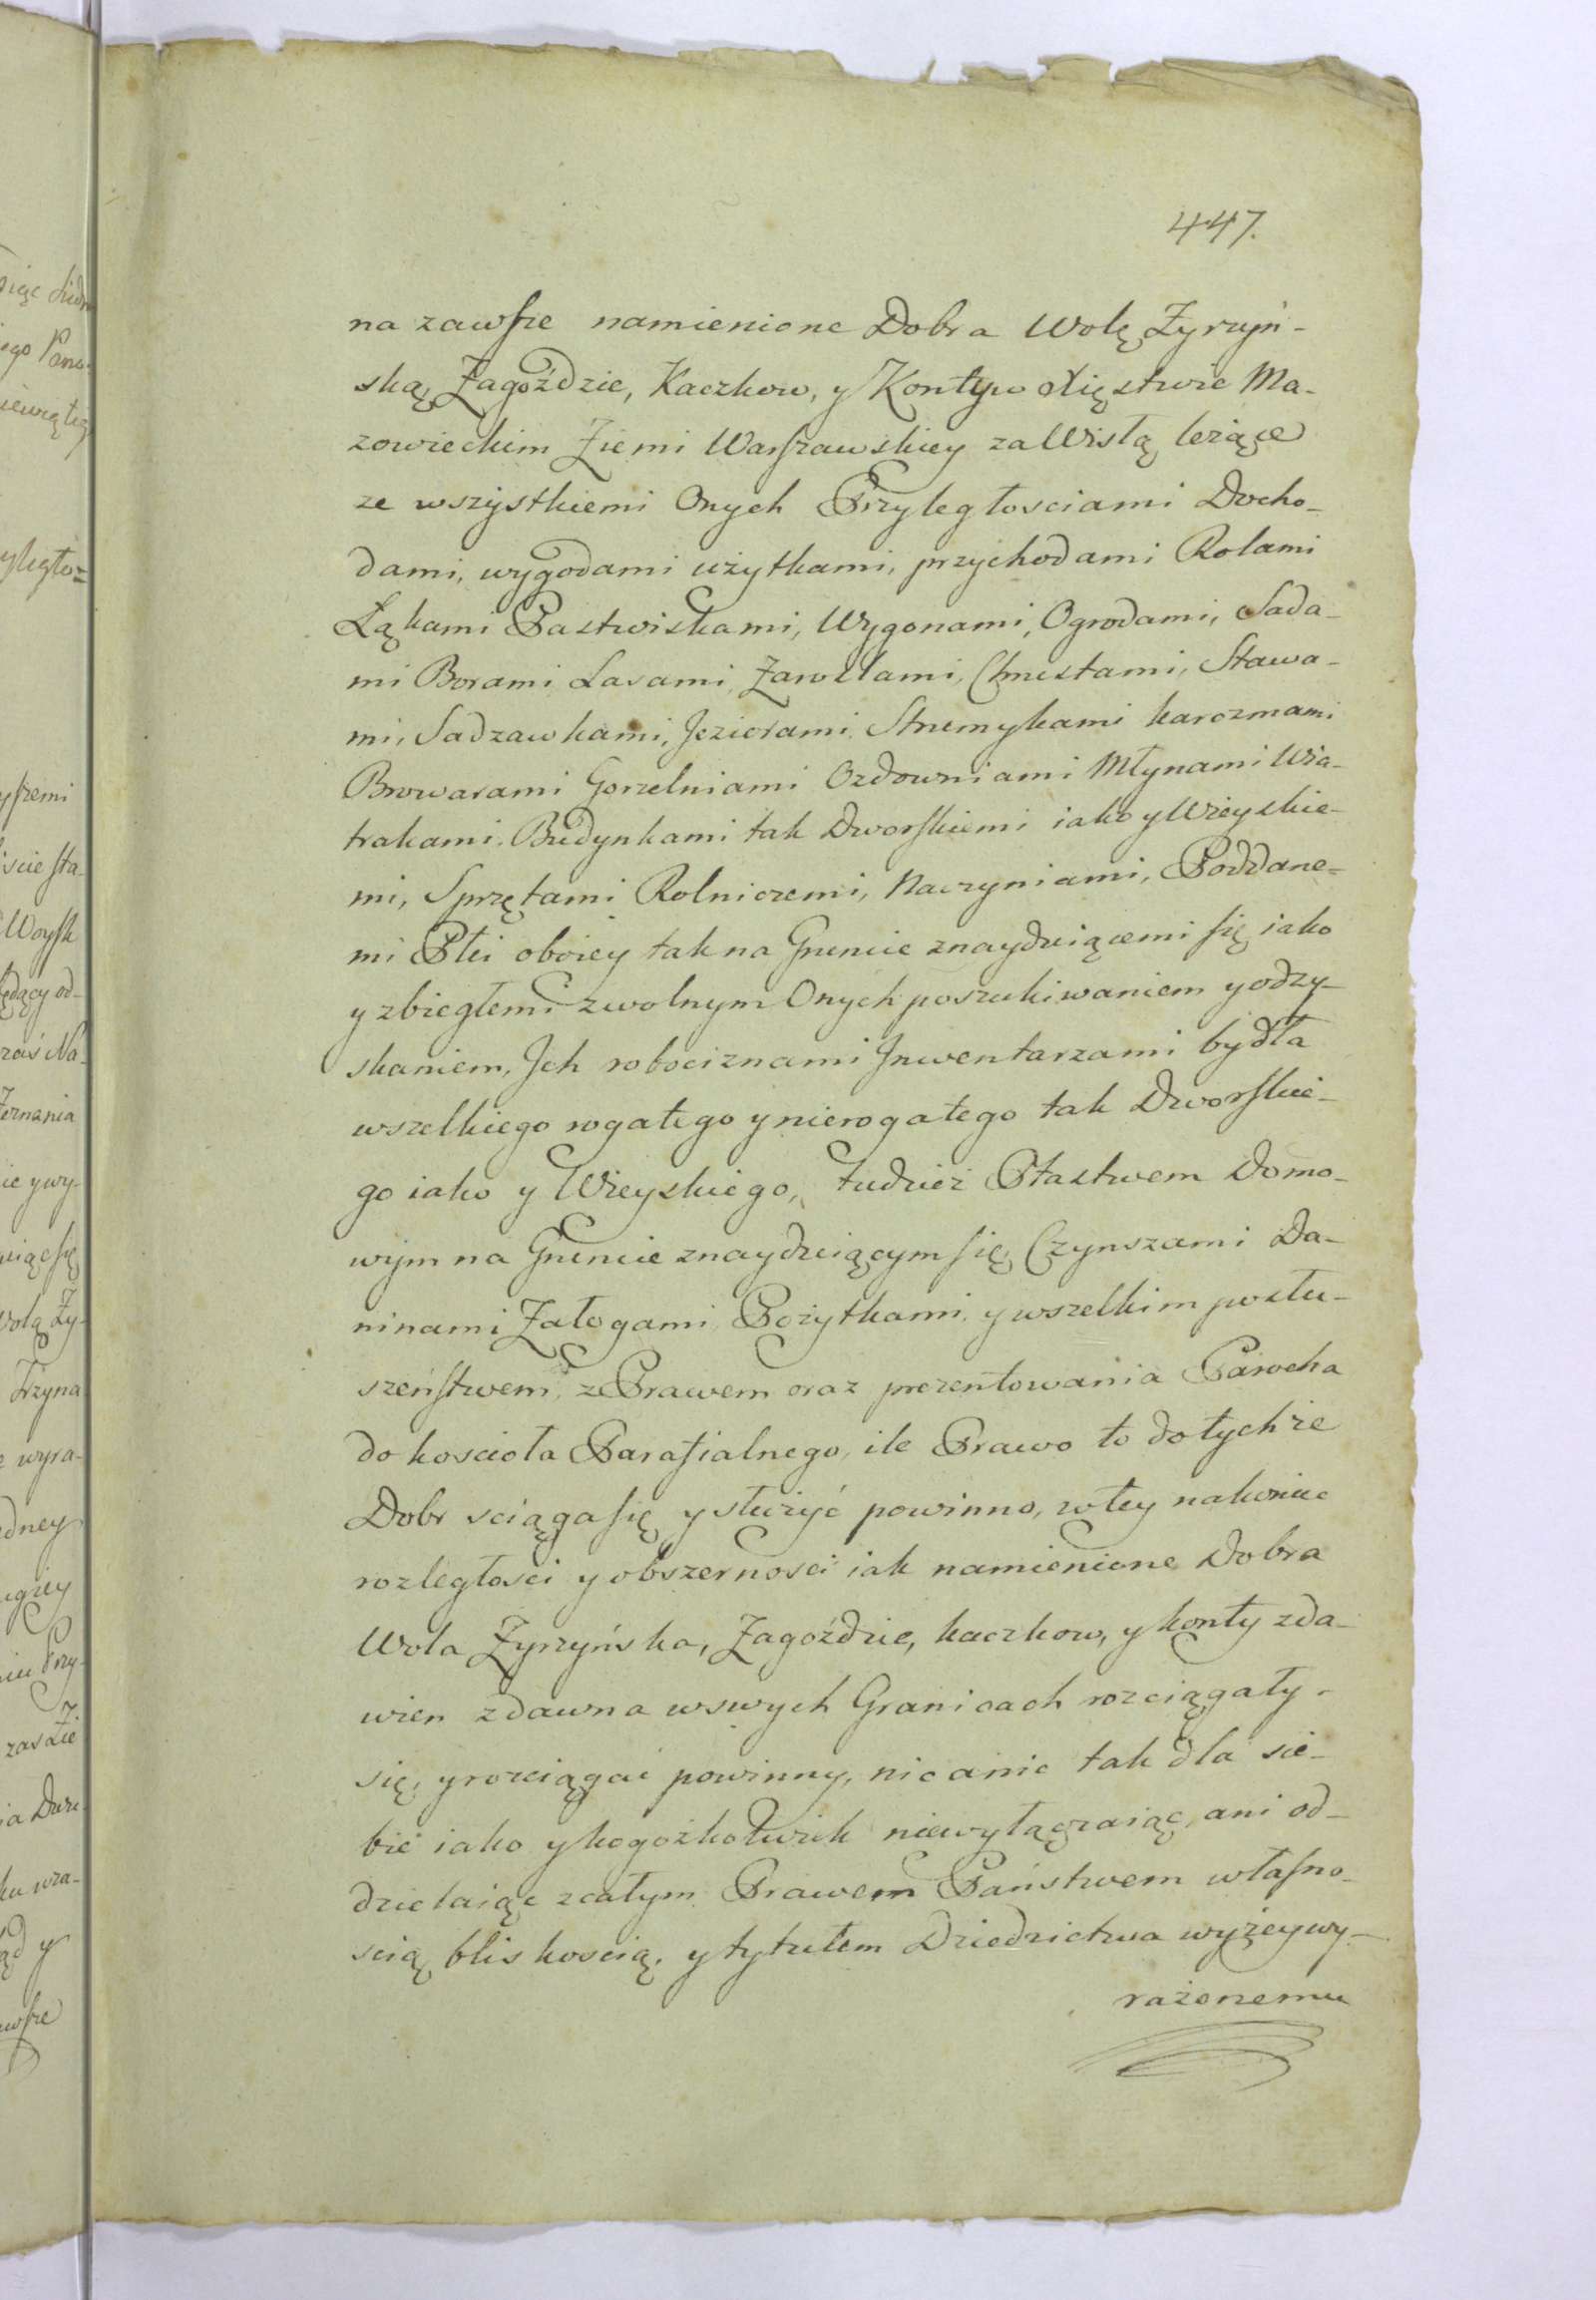 447.
na zawsze namienione Dobra Wolę Żyrzyń-
ską Zagoździe, Kaczkow, y Kontyw Xięstwie Ma-
zowieckim Ziemi Warszawskiey za Wisłą leżące
ze wszystkiemi Onych Przyległosciami Docho-
dami, wygodami użytkami, przychodami Rolami
Łąkami Pastwiskami, Wygonami, Ogrodami, Sada-
mi Borami Lasami Zaroslami, Chrustami, Stawa-
mi, Sadzawkami, Jeziorami Strumykami karczmami
Browarami Gorzelniami Ozdowniami Młynami Wia-
trakami. Budynkami tak Dworskiemi iako y Wieyskie-
mi, Sprzętami Rolniczemi, Naczyniami, Poddane-
mi Płci oboiey tak na Gruncie znayduiącemi się iako
y zbiegłemi zwolnym Onych poszukiwaniem y odzy-
skaniem, Jch robociznami Jnwentarzami bydła
wszelkiego rogatego y nierogatego tak Dworskie-
go iako y Wieyskiego, tudzież Ptastwem Domo-
wym na Gruncie znayduiącym się, Czynszami Da-
ninami Załogami Pożytkami y wszelkim posłu-
szeństwem, z Prawem oraz prezentowania Parocha
do koscioła Parafialnego, ile Prawo to do tychże
Dobr sciąga się y służyć powinno, w tey nakoniec
rozległosci y obszernosci iak namienione Dobra
Wola Zyrzyńska, Zagoździe, kaczkow, y konty zda-
wien zdawna wswych Granicach rozciągały
się, y rozciągać powinny, nic a nic tak dla sie-
bie iako y kogożkolwiek niewyłączaiąc, ani od-
dzielaiąc z całym Prawem Państwem własno-
scią bliskoscią, y tytułem Dziedzictwa wyżey wy-
rażonemu